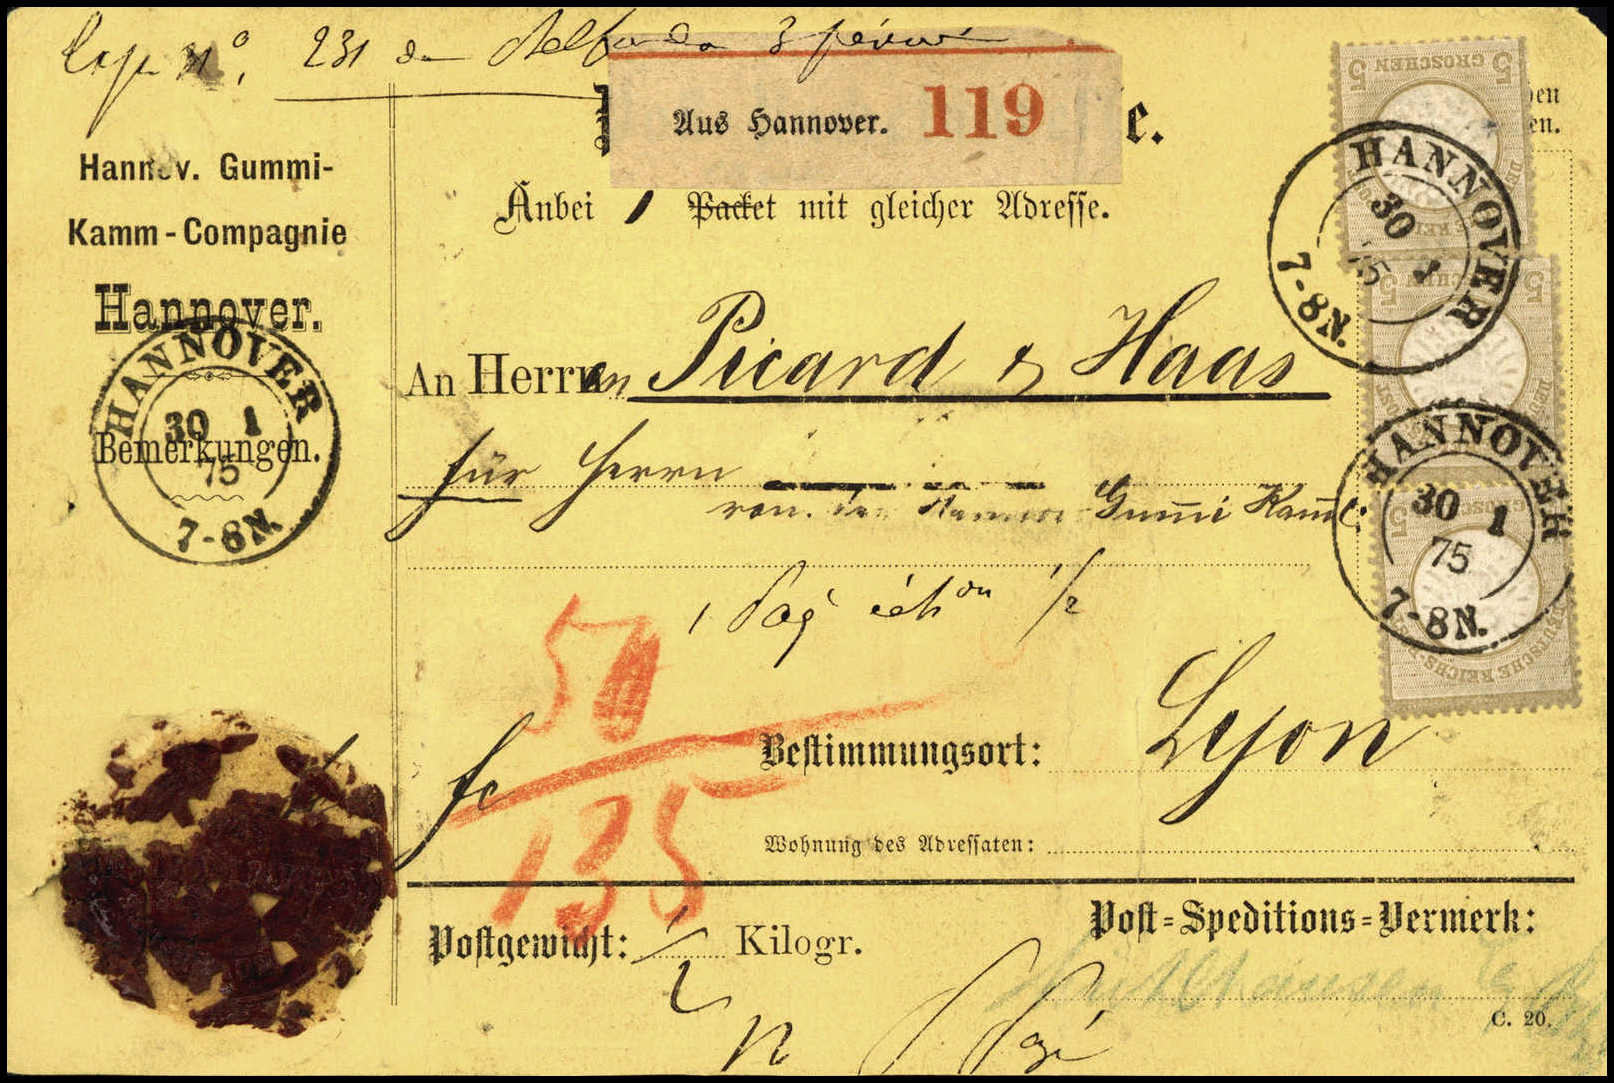 231
3
Aus Hannover. 119
e.
en
en.
Hannov. Gummi-
Kamm-Compagnie
Hannover.
Anbei 1 Packet mit gleicher Adresse.
An Herrn Picard & Haas
für Herrn
von Gummi Kam̄C:
Bemerkungen.
HANNOVER
30 1
75
7-8N.
5 GROSCHEN 5
HANNOVER
30 1
75
7-8N.
5 5
HANNOVER
30 1
75
7-8N.
5 GROSCHEN
DEUTSCHE REICHS-
1 éch on 1/2
50
135
fc
Bestimmungsort: Lyon
Wohnung des Adressaten:
Postgewicht: 1/2 Kilogr.
Post-Speditions-Vermerk:
C. 20.